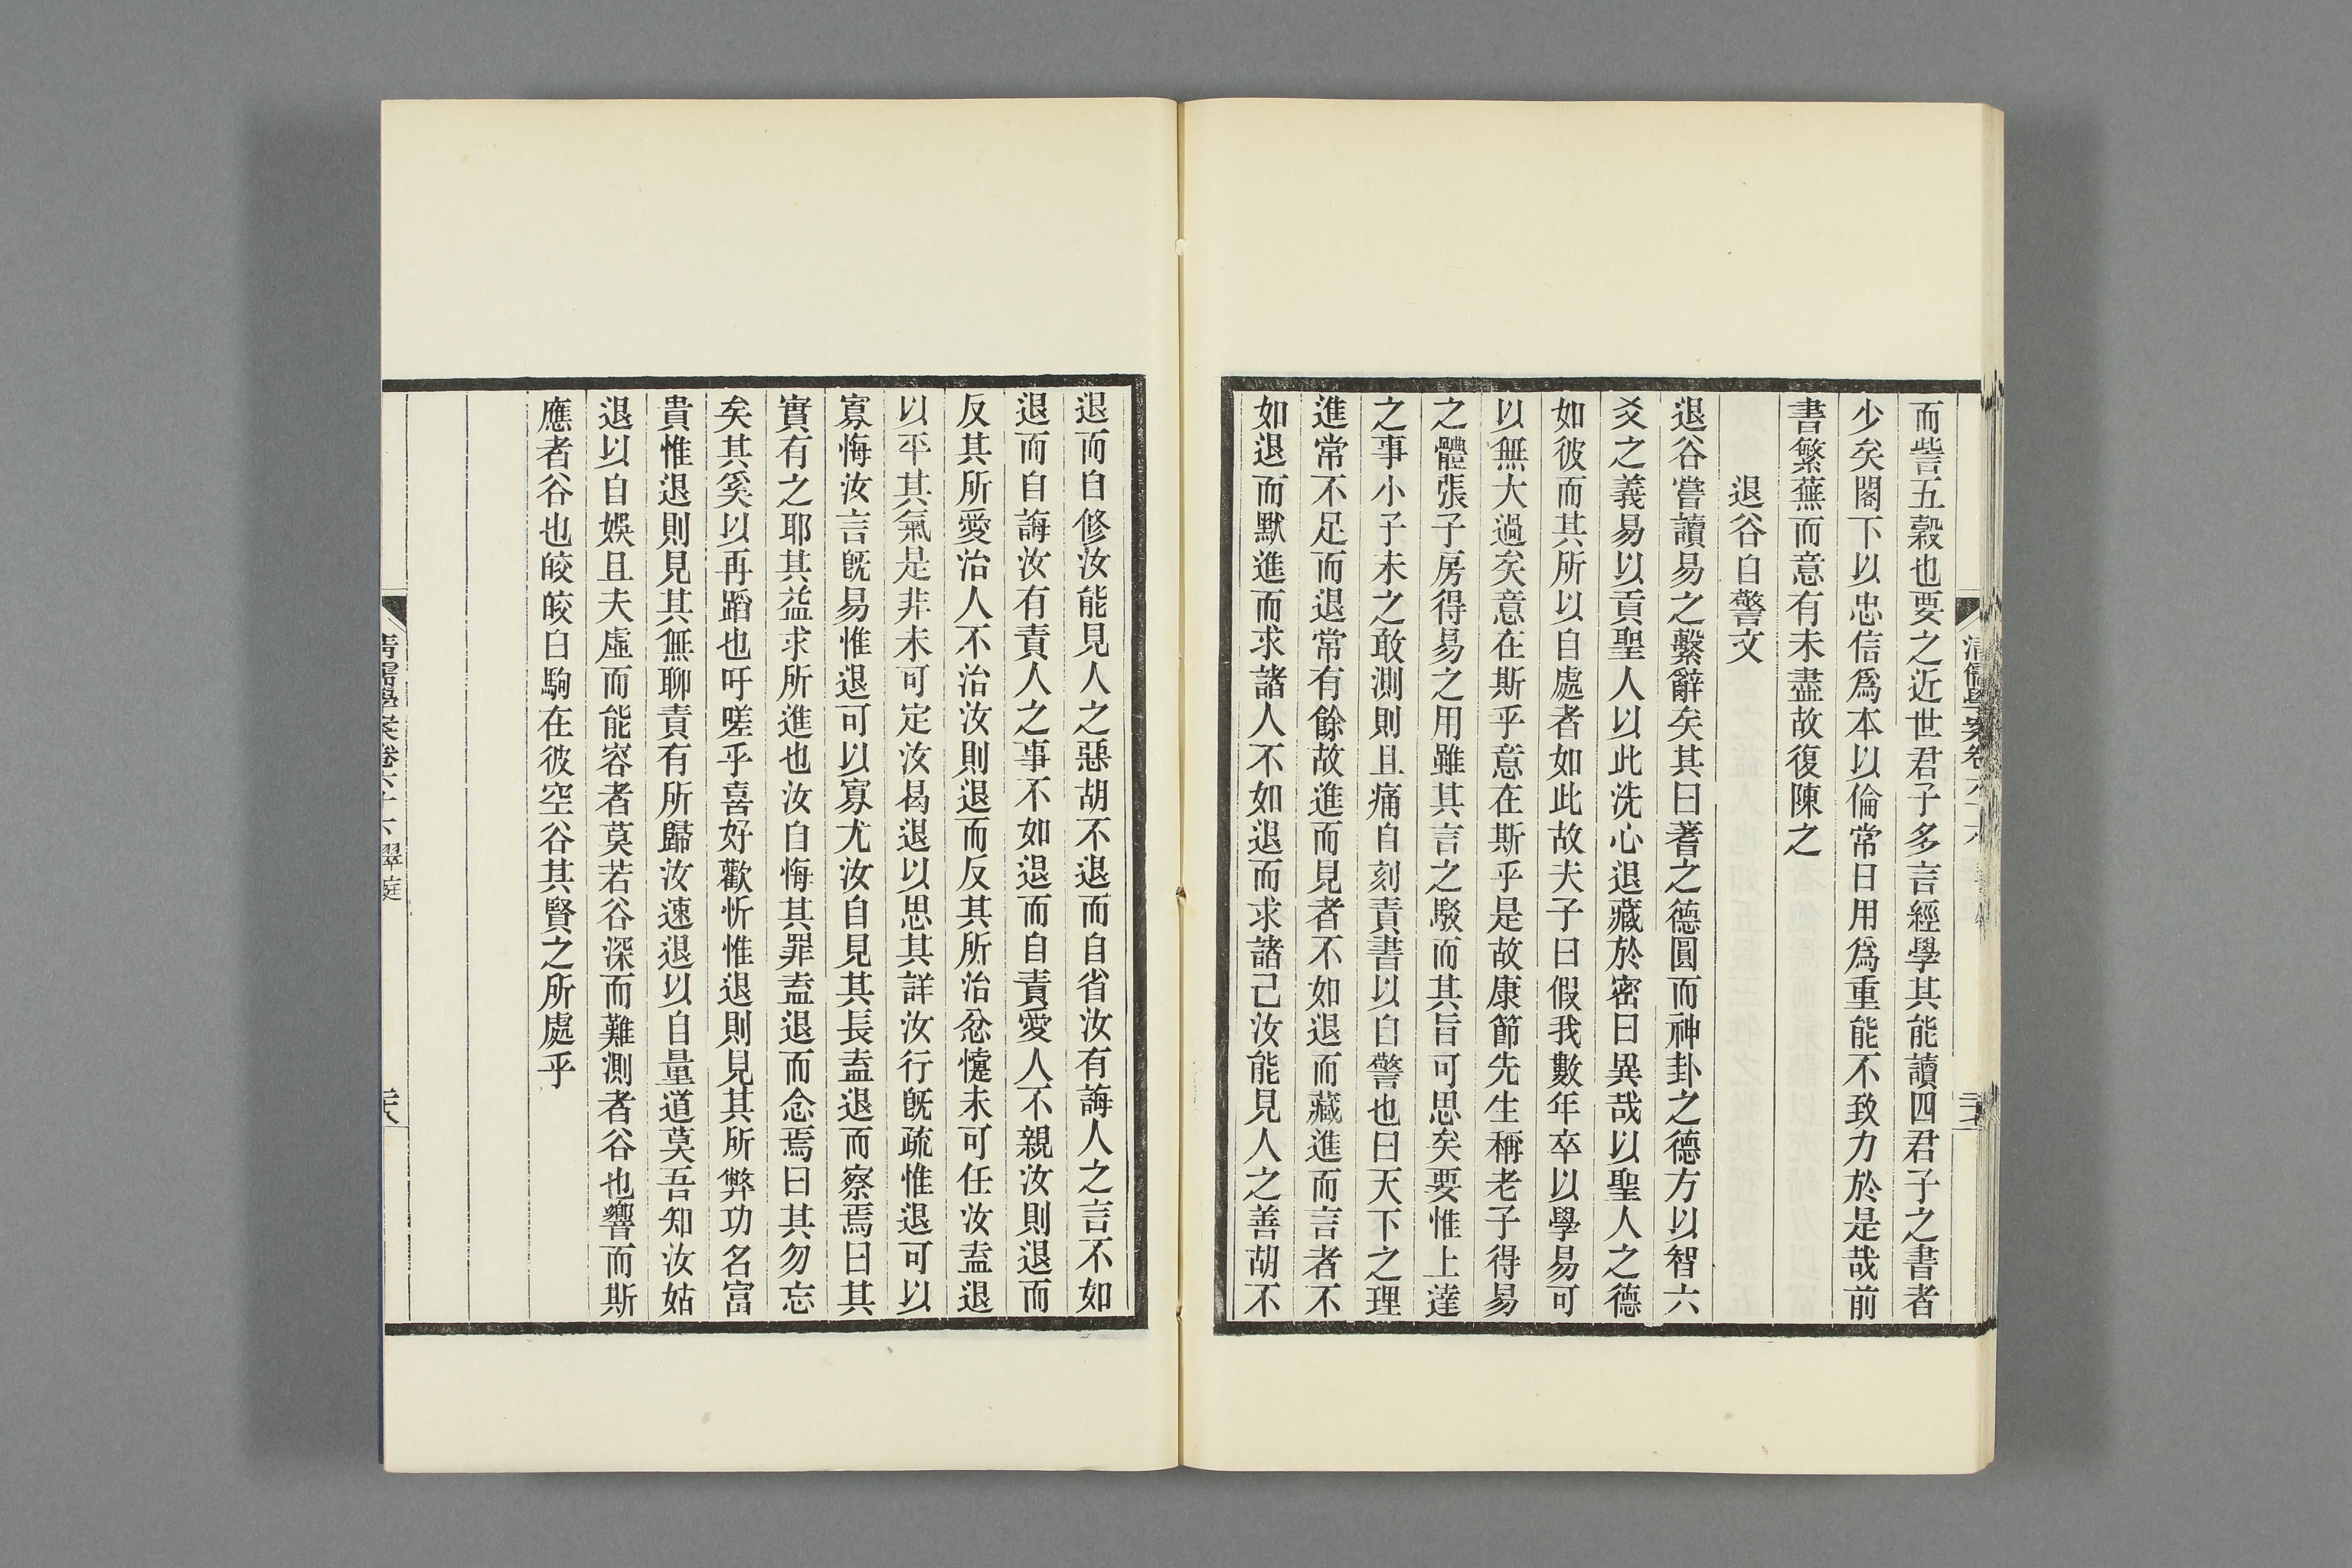 清儒學案卷六十六
而訾五穀也要之近世君子多言經學其能讀四君子之書者
少矣閣下以忠信爲本以倫常日用爲重能不致力於是哉前
書繁蕪而意有未盡故復陳之
退谷自警文
退谷嘗讀易之繫辭矣其曰蓍之德圓而神卦之德方以智六
爻之義易以貢聖人以此洗心退藏於密曰異哉以聖人之德
如彼而其所以自處者如此故夫子曰假我數年卒以學易可
以無大過矣意在斯乎意在斯乎是故康節先生稱老子得易
之體張子房得易之用雖其言之駁而其旨可思矣要惟上達
之事小子未之敢測則且痛自刻責書以自警也曰天下之理
進常不足而退常有餘故進而見者不如退而藏進而言者不
如退而默進而求諸人不如退而求諸己汝能見人之善胡不
退而自修汝能見人之惡胡不退而自省汝有誨人之言不如
退而自誨汝有責人之事不如退而自責愛人不親汝則退而
反其所愛治人不治汝則退而反其所治忿懥未可任汝盍退
以平其氣是非未可定汝曷退以思其詳汝行旣疏惟退可以
寡悔汝言旣易惟退可以寡尤汝自見其長盍退而察焉曰其
實有之耶其益求所進也汝自悔其罪盍退而念焉曰其勿忘
矣其奚以再蹈也吁嗟乎喜好歡忻惟退則見其所弊功名富
貴惟退則見其無聊責有所歸汝速退以自量道莫吾知汝姑
退以自娛且夫虛而能容者莫若谷深而難測者谷也響而斯
應者谷也皎皎白駒在彼空谷其賢之所處乎
清儒學案卷六十六 翠庭